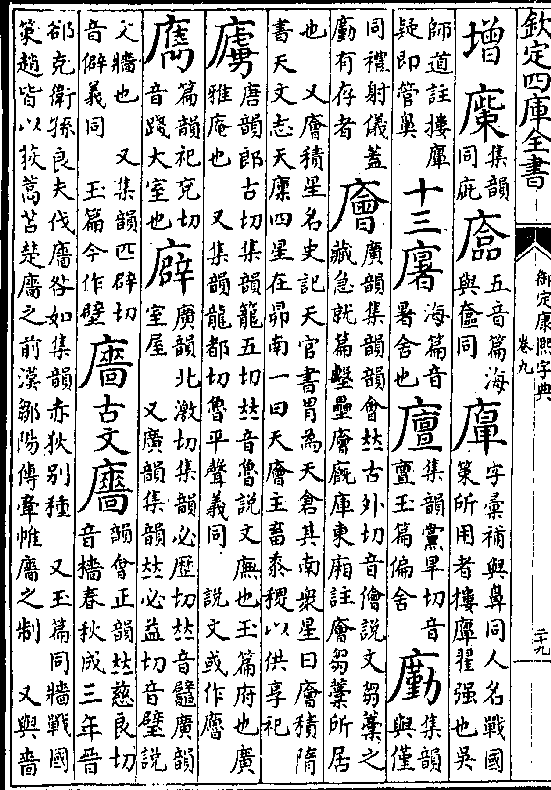 欽定四庫全書
御定康熙字典
卷九
三九
增 㡻 集韻同庇 㢙 五音篇海與奩同 㢙 字彙補與鼻同人名戰國
策所用者摟㢙翟强也吳師道註摟㢙
疑即管鼻 十三 㢑 海篇音暑舍也 㢆 集韻黨旱切音亶玉篇偏舍 廑 集韻與僅
同禮射儀蓋廑有存者 廥 廣韻集韻韻會𠀤古外切音儈說文芻藁之
藏急就篇墼壘廥廄庫東廂註廥芻藁所居
也 又廥積星名史記天官書胃為天倉其南衆星曰廥積隋
書天文志天廩四星在昴南一曰天廥主畜黍稷以供享祀
㢚 唐韻郎古切集韻籠五切𠀤音魯說文廡也玉篇府也廣
雅庵也 又集韻龍都切魯平聲義同 說文或作廥
㢡 篇韻祀兗切音踐大室也 廦 廣韻北激切集韻必歷切𠀤音鼊廣韻
室屋 又廣韻集韻𠀤必益切音璧說
文牆也 又集韻匹辟切音僻義同 玉篇今作壁 廧 古文 𢋪 韻會正韻𠀤慈良切
音檣春秋成三年晉
郤克衛孫良夫伐廧咎如集韻赤狄别種 又玉篇同牆戰國
策趙皆以荻蒿苫楚廧之前漢鄒陽傳牽帷廧之制 又與嗇